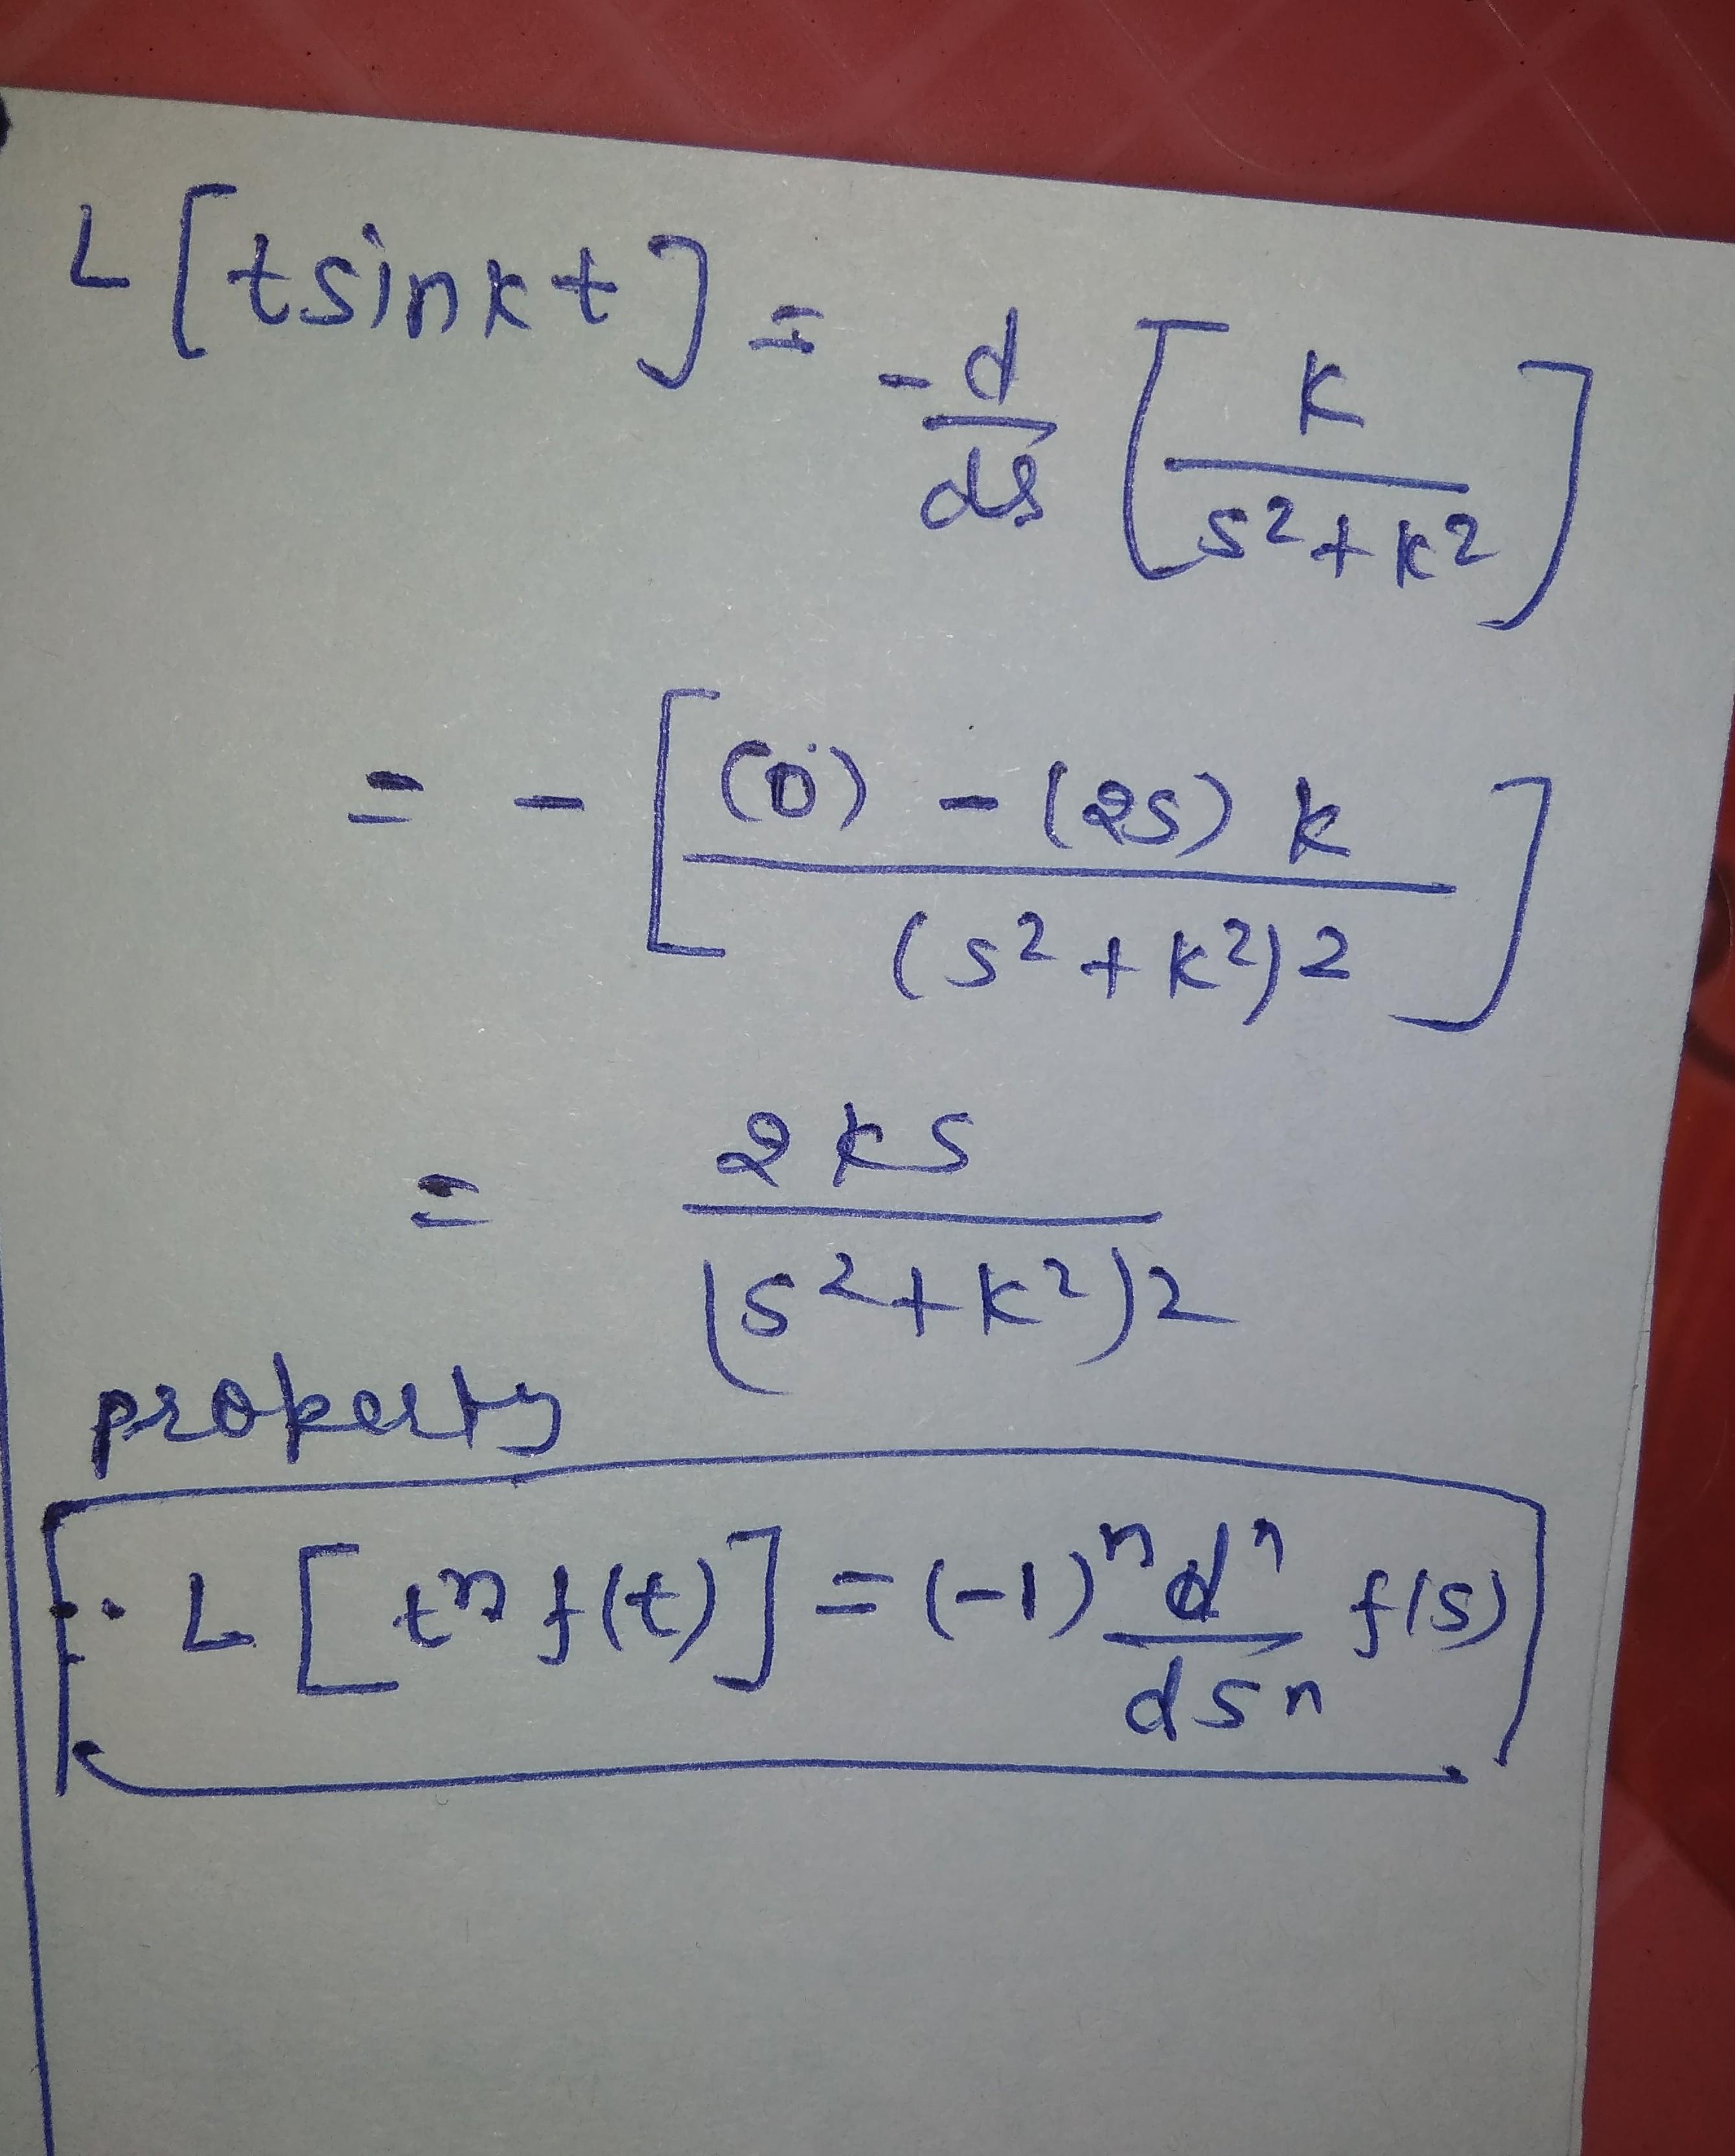 L[tsinkt] = -d/ds [k/s²+k²]
= - [(0) - (2s) k/(s²+k²)2]
= 2ks/(s²+k²)2
property
∴ L[tⁿ f(t)] = (-1)ⁿ dⁿ/dsⁿ f(s)